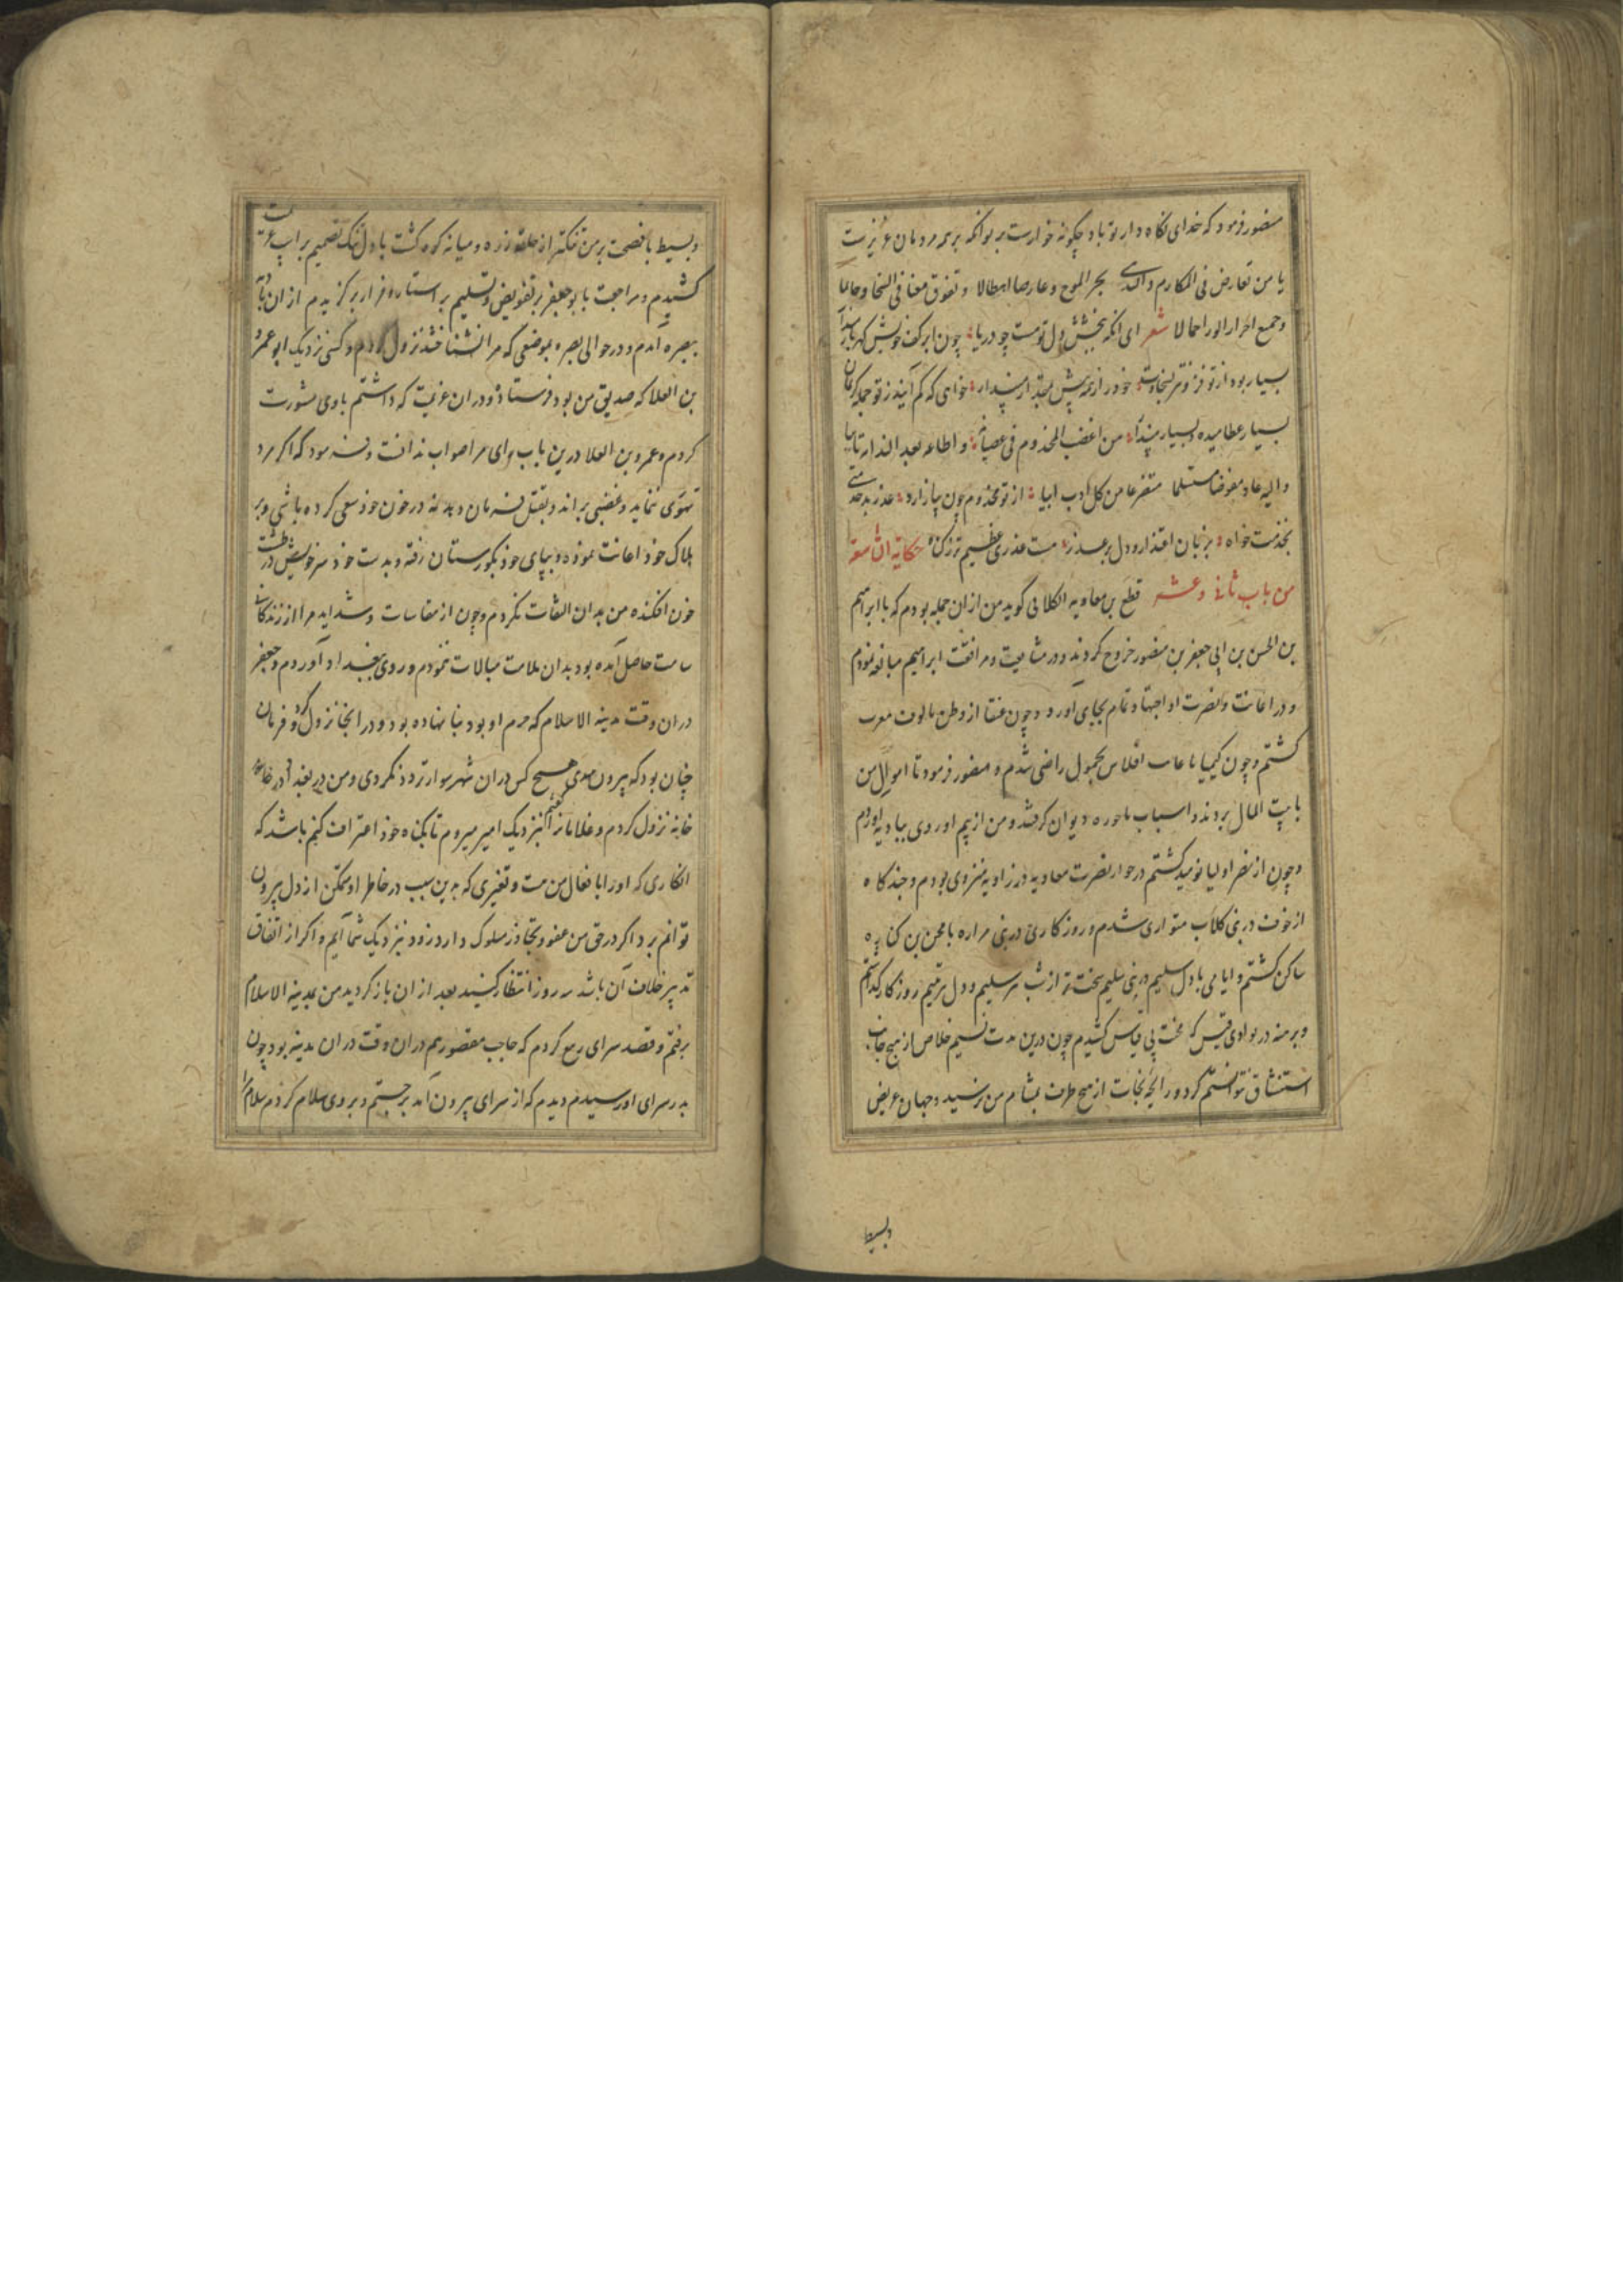 منصور فرمود که خدای نکاه دار تو باد چکونه خوارست بر تو انکه بر همه مردمان عزیزست
یا من تعارض فی المکارم والندی بحر الموج وعارضا هطالا وتفوق معنا فی السخا وحاتما
وجمیع احرار الوری اجمالا شعر ای انکه ببخشش دل تو هست چو دریا چون ابر کف خویش کهربار
بسیار بود از تو سخاوت خود را ز همه پیش مپندار خواهی که کم آیند ز تو جمله کریمان
بسیار عطا میده وبسیار مپندار من اغضب المخدوم فی عصیانه واطاعه بعد الندامة تایبا
والیه عاد مفوضا مستسلما متضرعا من کل ادب از تو مخدوم چون بیازارد عذر بد خدمتی
بخدمت خواه بزبان اعتذار ودل بر عذر هست عذری عظیم تر ز کناه حکایة التاسعة
من باب ثانی وعشر قطع بن معاویه الکلابی کوید من از ان جمله بودم که با ابراهیم
بن الحسن بن ابی جعفر بن منصور خروج کردند ودر متابعت ومرافقت ابراهیم مبالغه نمودم
ودر اعانت ونصرت او اجتهاد تمام بجای اورد وچون عنقا از وطن مالوف مغرب
کشتم وچون کیمیا بخمول راضی شدم ومنصور فرمود تا اموال من
با بیت المال بردند واسباب با حوزه دیوان کرفتند ومن از بیم او روی ببادیه اوردم
وچون از نصر اولیا نومید کشتم در جوار نضرت معاویه در زاویه منزوی بودم وچند کاه
از خوف در بنی کلاب متواری شدم وروزکاری در بنی مراره با محن بی کناره
ساکن کشتم وایامی با دل سلیم در بنی سلیم سخت تر از شب سلیم ودل یتیم روزکار کذاشتم
وبرهنه در بوادی قیس که محنت بی قیاس کشیدم چون درین مدت نسیم خلاص از هیچ جانب
استنشاق نتوانستم کرد ورایحه نجات از هیچ طرف بمشام من نرسید وجهان عریض
وبسیط
وبسیط با فسحت بر من تنکتر از حلقه زره ومیانه کوه کشت با دل تنک تصمیم بر اسب عزیمت
کشیدم ومراجعت با بو جعفر بر تفویض وتسلیم بر استار وفرار برکزیدم از ان باز
ببصره آمدم ودر حوالی بصره بموضعی که مرا نشناختند نزول کردم وکسی نزدیک ابو عمرو
بن العلا که صدیق من بود فرستاد ودران عزیمت که داشتم باوی مشورت
کردم وعمرو بن العلا درین باب رای مرا صواب ندانست وفرمود که اکر مرد
تهوری نماید وغضبی براند وبقتل فرمان دهد نه در خون خود سعی کرده باشی وبر
هلاک خود اعانت نموده وبپای خود بکورستان رفته وبدست خود سر خویش در طشت
خون افکنده من بدان التفات نکردم وچون از مقاسات وشداید مرا از زندکانی
سامت حاصل آمده بود بدان ملامت مبالات ننمودم وروی ببغداد آوردم وجعفر
دران وقت مدینة الاسلام که حرم او بود بنا نهاده بود ودر انجا نزول کرد وفرمان
چنان بود که بیرون مهدی هیچ کس دران شهر سوار تردد نکردی ومن در بغداد در خان
خانه نزول کردم وغلامان را کفتم بنزدیک امیر میروم تا بکناه خود اعتراف کنم باشد که
انکاری که او را با فعال من هست وتغیری که بدین سبب در خاطر او متمکن از دل بیرون
توانم برد اکر در حق من عفو وتجاوز مسلوک دارد زود بنزدیک شما آیم واکر از اتفاق
تدبیر خلاف آن باشد سه روز انتظار کنید بعد از ان باز کردید من بمدینة الاسلام
برفتم وقصد سرای ربیع کردم که حاجب مقصور هم دران وقت دران مدینه بود چون
بدر سرای او رسیدم دیدم که از سرای بیرون آمد برجستم وبر وی سلام کردم سلام را